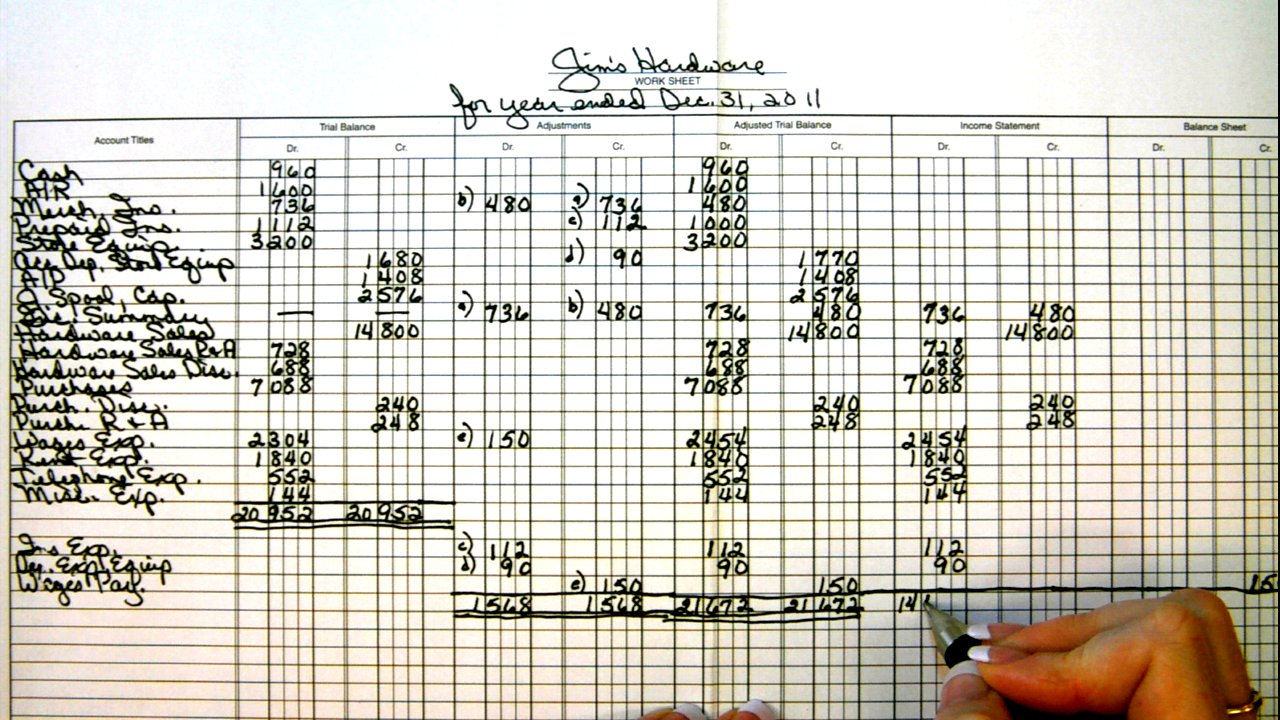 Jim's Hardware
WORK SHEET
for year ended Dec. 31, 2011
Account Titles Trial Balance Adjustments Adjusted Trial Balance Income Statement Balance Sheet
Dr. Cr. Dr. Cr. Dr. Cr. Dr. Cr. Cr.
Cash 960 960
A/R 1600 1600
Merch. Ins. 736 b) 480 a) 736 480
Prepaid Ins. 1112 c) 112 1000
Store Equip. 3200 3200
Acc. Dep. Store Equip 1680 d) 90 1770
A/P 1408 1408
J. Spool, Cap. 2576 2576
Inc. Summary — — a) 736 b) 480 736 480 736 480
Hardware Sales 14800 14800 14800
Hardware Sales R+A 728 728 728
Hardware Sales Disc. 688 688 688
Purchases 7088 7088 7088
Purch. Disc. 240 240 240
Purch. R+A 248 248 248
Wages Exp. 2304 e) 150 2454 2454
Rent Exp. 1840 1840 1840
Telephone Exp. 552 552 552
Misc. Exp. 144 144 144
20952 20952
Ins Exp. c) 112 112 112
Dep. Exp. Equip d) 90 90 90
Wages Pay. e) 150 150 15
1568 1568 21672 21672 14